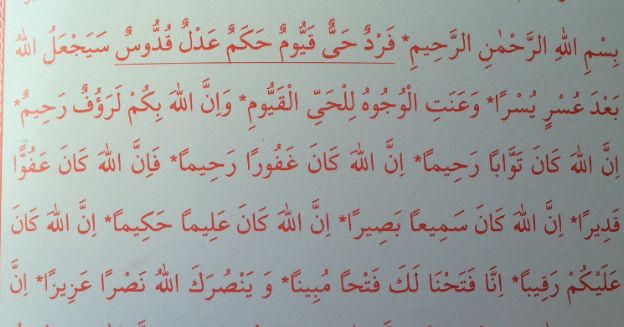 بِسْمِ اللهِ الرَّحْمٰنِ الرَّحِيمِ* فَرْدٌ حَىٌّ قَيُّومٌ حَكَمٌ عَدْلٌ قُدُّوسٌ سَيَجْعَلُ اللهُ
بَعْدَ عُسْرٍ يُسْرًا* وَعَنَتِ الْوُجُوهُ لِلْحَىِّ الْقَيُّومِ* وَاِنَّ اللهَ بِكُمْ لَرَؤُفٌ رَحِيمٌ*
اِنَّ اللهَ كَانَ تَوَّابًا رَحِيمًا* اِنَّ اللهَ كَانَ غَفُورًا رَحِيمًا* فَاِنَّ اللهَ كَانَ عَفُوًّا
قَدِيرًا* اِنَّ اللهَ كَانَ سَمِيعًا بَصِيرًا* اِنَّ اللهَ كَانَ عَلِيمًا حَكِيمًا* اِنَّ اللهَ كَانَ
عَلَيْكُمْ رَقِيبًا* اِنَّا فَتَحْنَا لَكَ فَتْحًا مُبِينًا* وَ يَنْصُرَكَ اللهُ نَصْرًا عَزِيزًا* اِنَّ